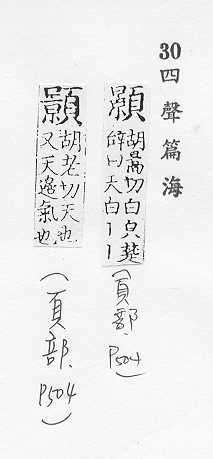 30四聲篇海
顥
胡暠切白皃楚
辝曰天白丨丨
(頁部、P504)
顥
胡老切天也
又天邊氣也
(頁部、P504)